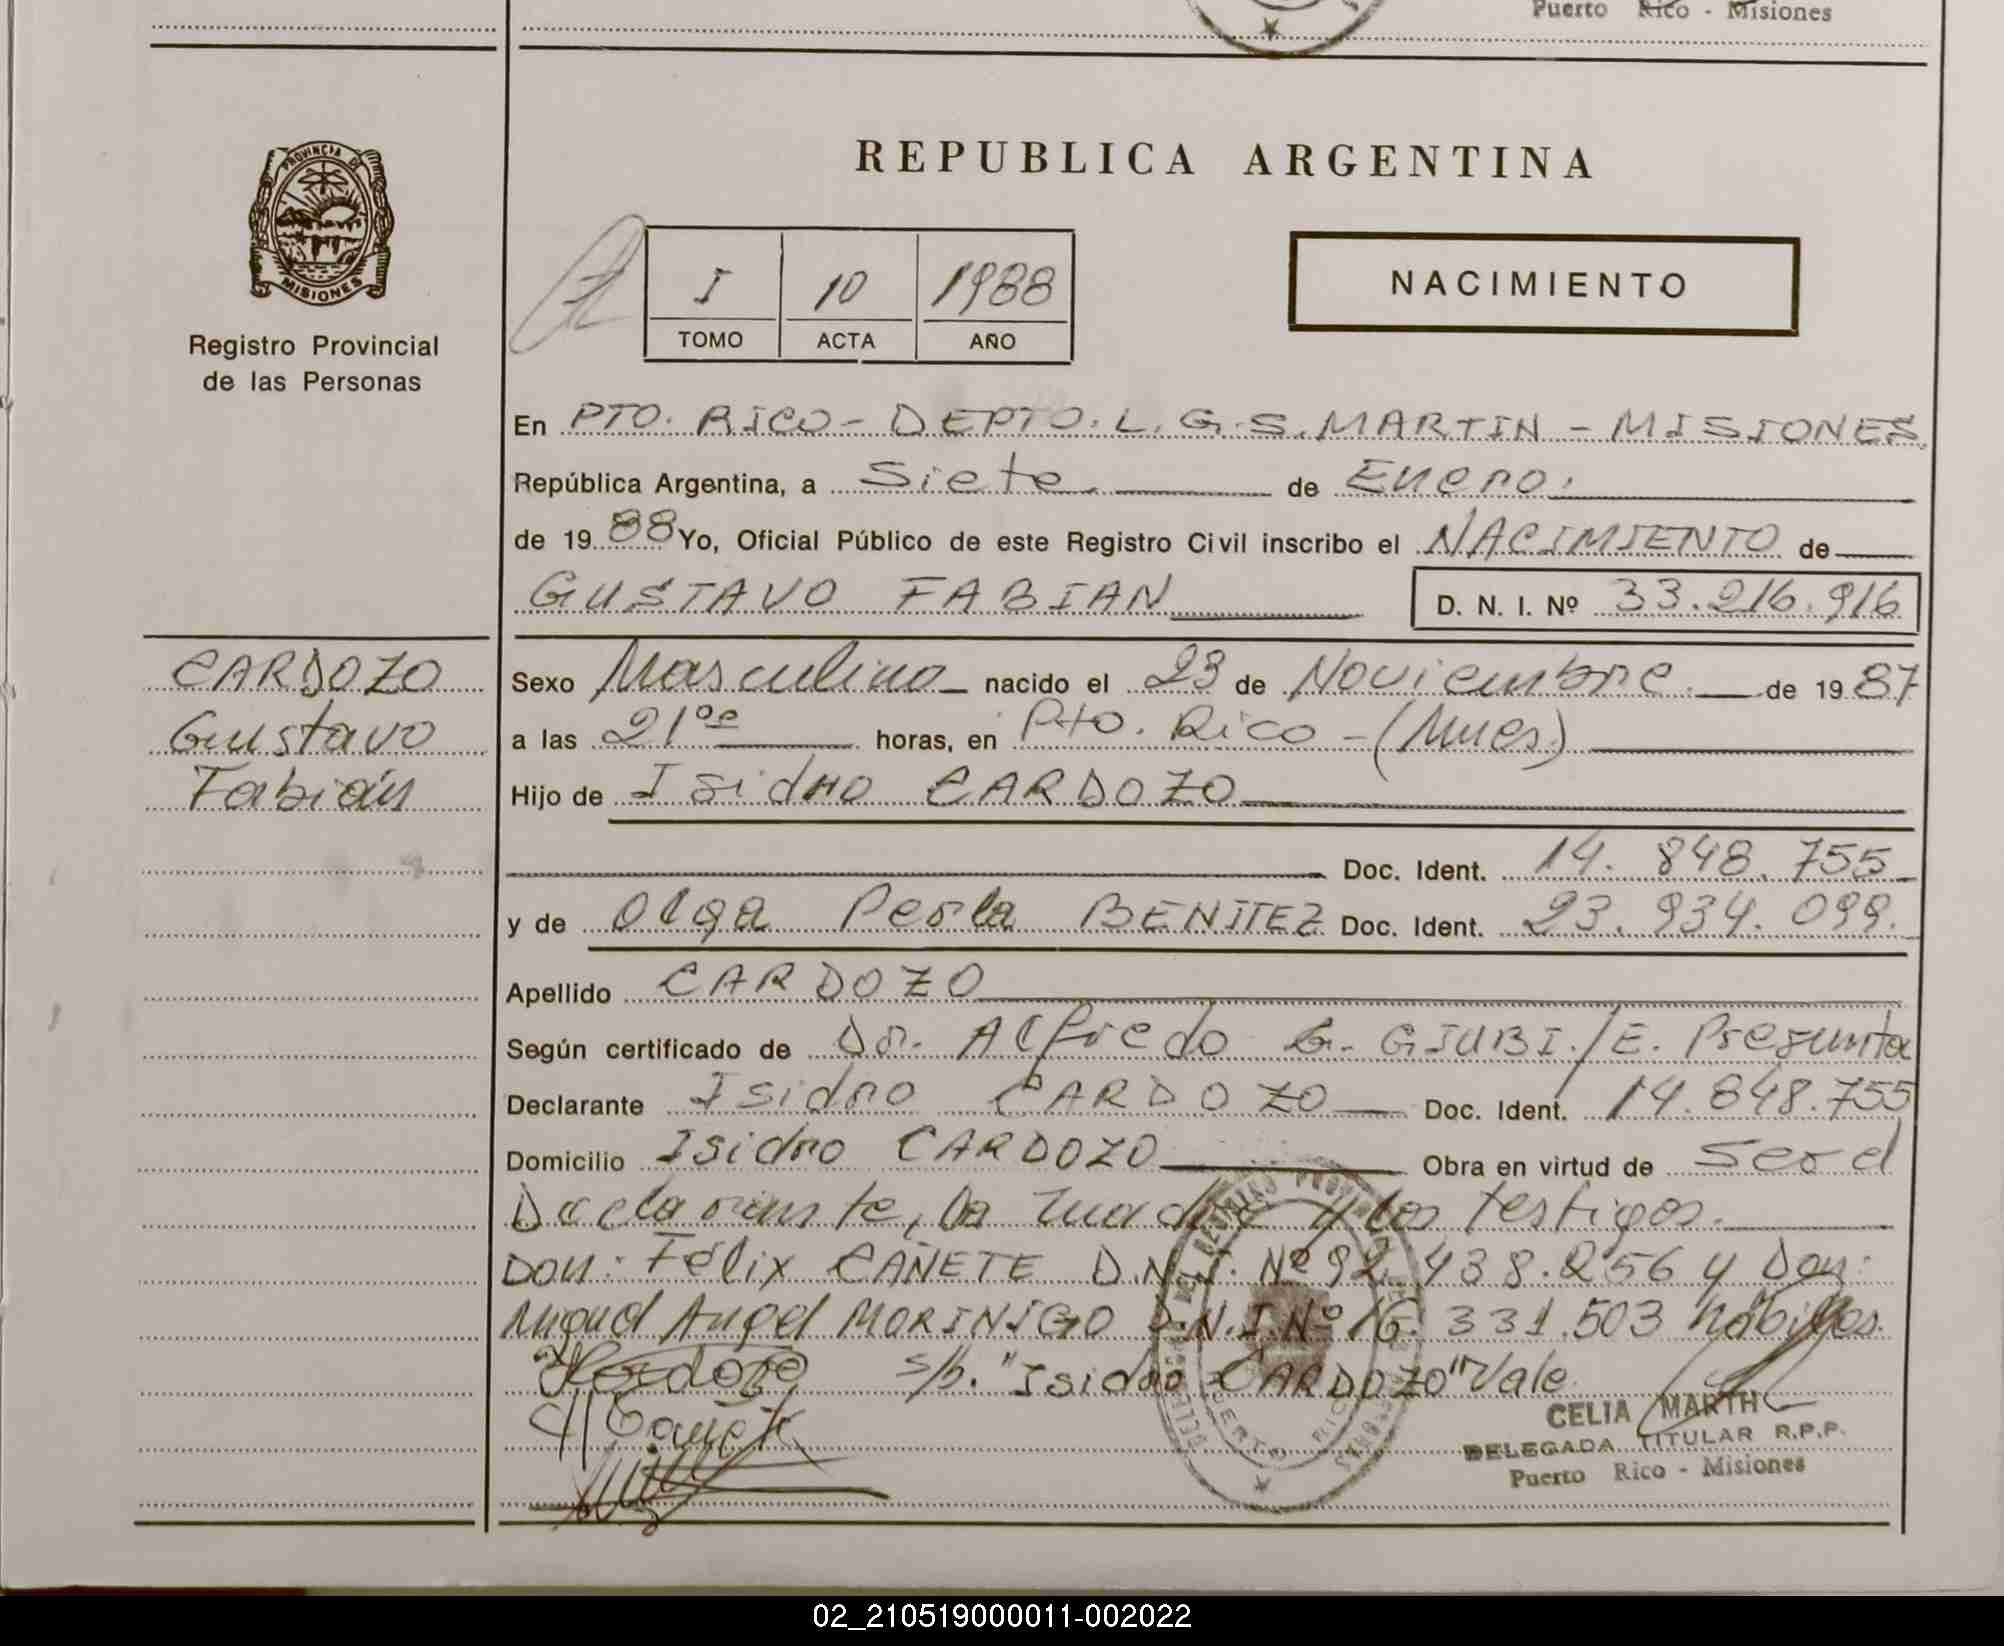 Puerto Rico - Misiones
PROVINCIA DE
MISIONES
Registro Provincial
de las Personas
REPUBLICA ARGENTINA
I 10 1988
TOMO ACTA AÑO
NACIMIENTO
En PTO. RICO - DEPTO. L. G. S. MARTIN - MISIONES
República Argentina, a Siete. de Enero.
de 1988 Yo, Oficial Público de este Registro Civil inscribo el NACIMIENTO de
GUSTAVO FABIAN D. N. I. Nº 33.216.916
CARDOZO
Gustavo
Fabián
Sexo Masculino nacido el 23 de Noviembre. de 1987
a las 21ºº horas, en Pto. Rico - (Mnes)
Hijo de Isidro CARDOZO
Doc. Ident. 14.848.755
y de Olga Perla BENITEZ Doc. Ident. 23.934.099.
Apellido CARDOZO
Según certificado de Dr. Alfredo G. GIUBI./E. Pregunta
Declarante Isidro CARDOZO Doc. Ident. 14.848.755
Domicilio Isidro CARDOZO Obra en virtud de Ser el
Declarante, la madre y los testigos.
Don: Félix CAÑETE D.N.I. Nº 92.438.256 y Don:
Miguel Angel MORINIGO D.N.I. Nº 16.331.503 hábiles.
s/b. "Isidro CARDOZO" Vale
CELIA MARTH
DELEGADA TITULAR R.P.P.
Puerto Rico - Misiones
02_210519000011-002022